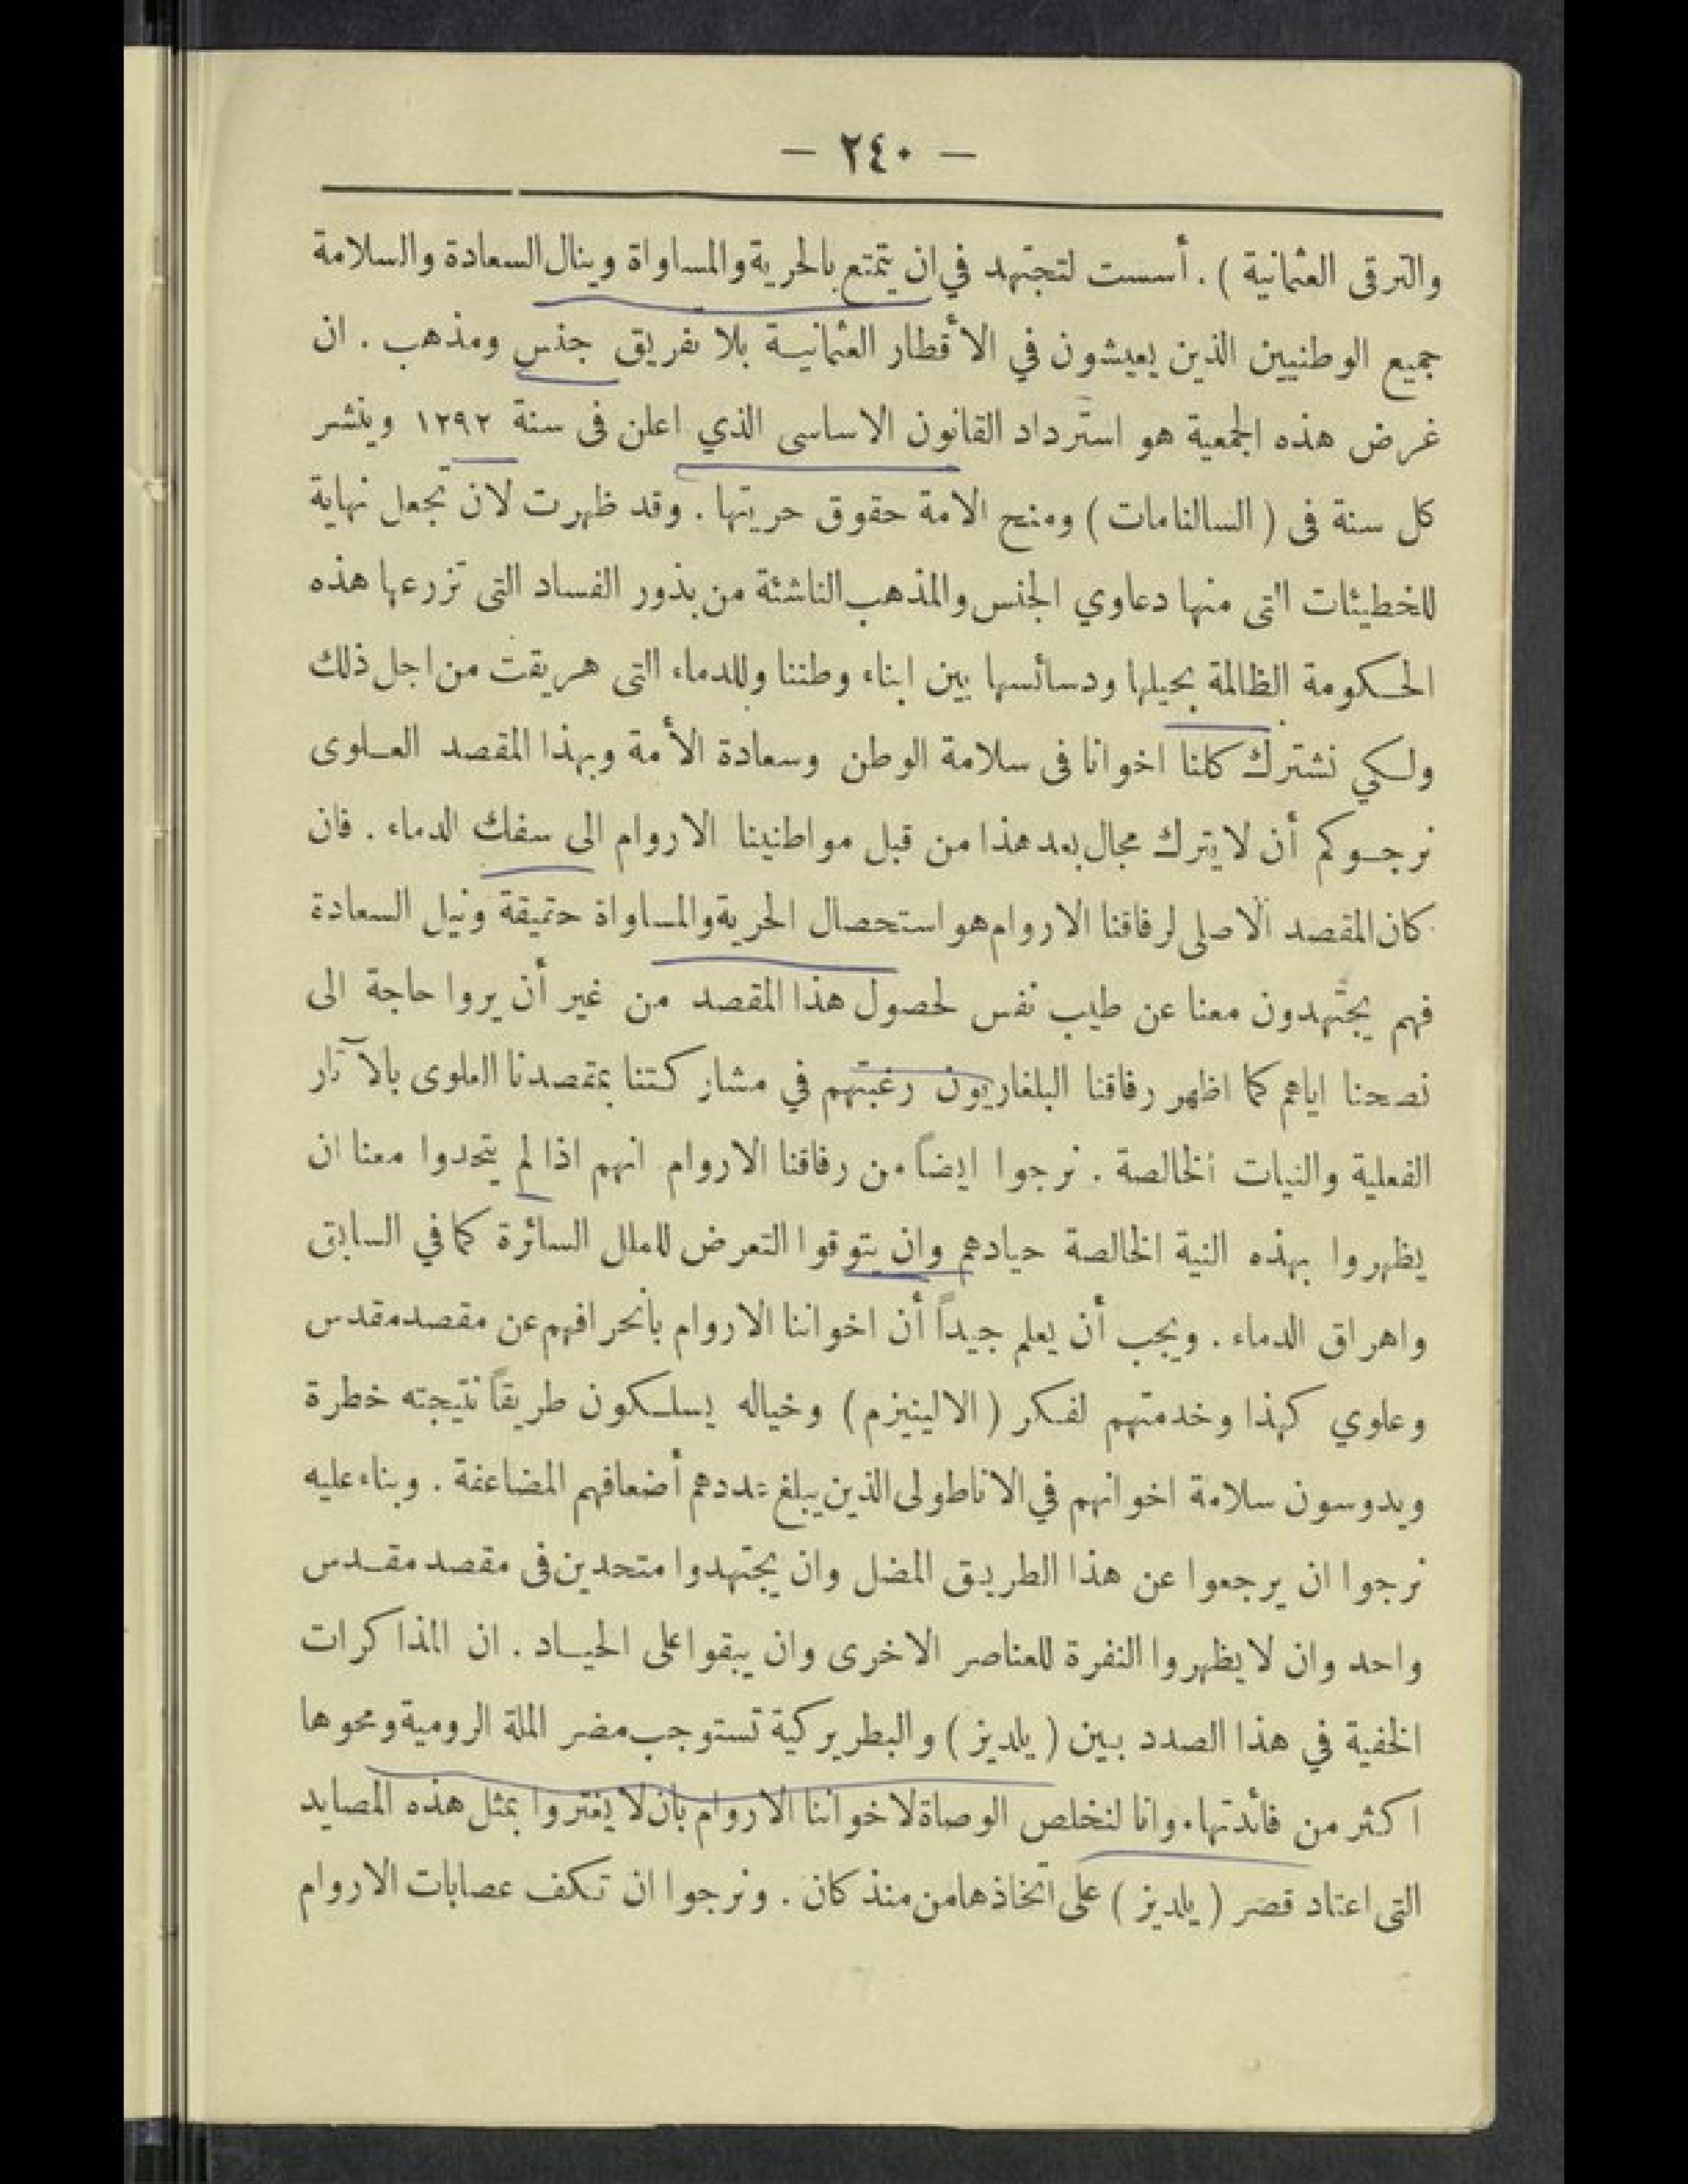 — ٢٤٠ —
والترقى العثمانية ) . أسست لتجتهد في ان يتمتع بالحرية والمساواة وينال السعادة والسلامة
جميع الوطنيين الذين يعيشون في الأقطار العثمانية بلا تفريق جنس ومذهب . ان
غرض هذه الجمعية هو استرداد القانون الاساسى الذي اعلن فى سنة ١٢٩٢ وينشر
كل سنة فى ( السالنامات ) ومنح الامة حقوق حريتها . وقد ظهرت لان تجعل نهاية
للخطيئات التى منها دعاوي الجنس والمذهب الناشئة من بذور الفساد التى تزرعها هذه
الحكومة الظالمة بحيلها ودسائسها بين ابناء وطننا وللدماء التى هريقت من اجل ذلك
ولكي نشترك كلنا اخوانا فى سلامة الوطن وسعادة الأمة وبهذا المقصد العلوى
نرجوكم أن لا يترك مجال بعد هذا من قبل مواطنينا الاروام الى سفك الدماء . فان
كان المقصد الاصلى لرفاقنا الاروام هو استحصال الحرية والمساواة حقيقة ونيل السعادة
فهم يجتهدون معنا عن طيب نفس لحصول هذا المقصد من غير أن يروا حاجة الى
نصحنا اياهم كما اظهر رفاقنا البلغاريون رغبتهم في مشاركتنا بمقصدنا العلوى بالآثار
الفعلية والنيات الخالصة . نرجوا ايضاً من رفاقنا الاروام انهم اذا لم يتحدوا معنا ان
يظهروا بهذه النية الخالصة حيادهم وان يتوقوا التعرض للملل السائرة كما في السابق
واهراق الدماء . ويجب أن يعلم جيداً أن اخواننا الاروام بانحرافهم عن مقصد مقدس
وعلوي كهذا وخدمتهم لفكر ( الالينيزم ) وخياله يسلكون طريقاً نتيجته خطرة
ويدوسون سلامة اخوانهم في الاناطولى الذين يبلغ عددهم أضعافهم المضاعفة . وبناء عليه
نرجوا ان يرجعوا عن هذا الطريق المضل وان يجتهدوا متحدين فى مقصد مقدس
واحد وان لا يظهروا النفرة للعناصر الاخرى وان يبقوا على الحياد . ان المذاكرات
الخفية في هذا الصدد بين ( يلديز ) والبطريركية تستوجب مضر الملة الرومية ومحوها
اكثر من فائدتها . وانا لنخلص الوصاة لاخواننا الاروام بان لا يغتروا بمثل هذه المصايد
التى اعتاد قصر ( يلديز ) على اتخاذها من منذ كان . ونرجوا ان تكف عصابات الاروام